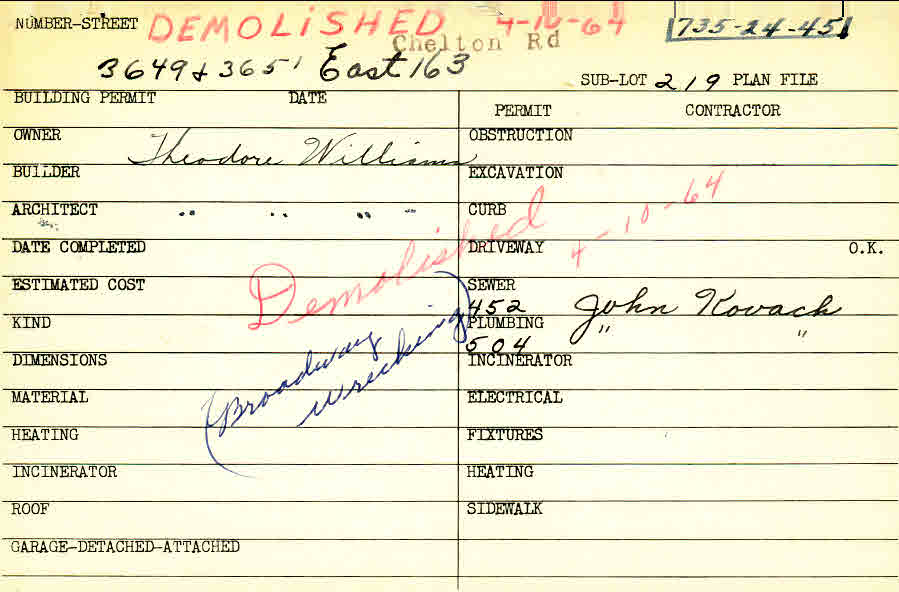 NUMBER-STREET DEMOLISHED 4-10-64 735-24-45
Chelton Rd
3649 & 3651 East 163
SUB-LOT 219 PLAN FILE
BUILDING PERMIT DATE
PERMIT CONTRACTOR
OWNER Theodore Williams
OBSTRUCTION
BUILDER
EXCAVATION
ARCHITECT " " " "
CURB
DATE COMPLETED
DRIVEWAY O.K.
Demolished 4-10-64
ESTIMATED COST
SEWER
452 John Kovach
KIND
PLUMBING " "
504
DIMENSIONS
INCINERATOR
(Broadway
Wrecking)
MATERIAL
ELECTRICAL
HEATING
FIXTURES
INCINERATOR
HEATING
ROOF
SIDEWALK
GARAGE-DETACHED-ATTACHED